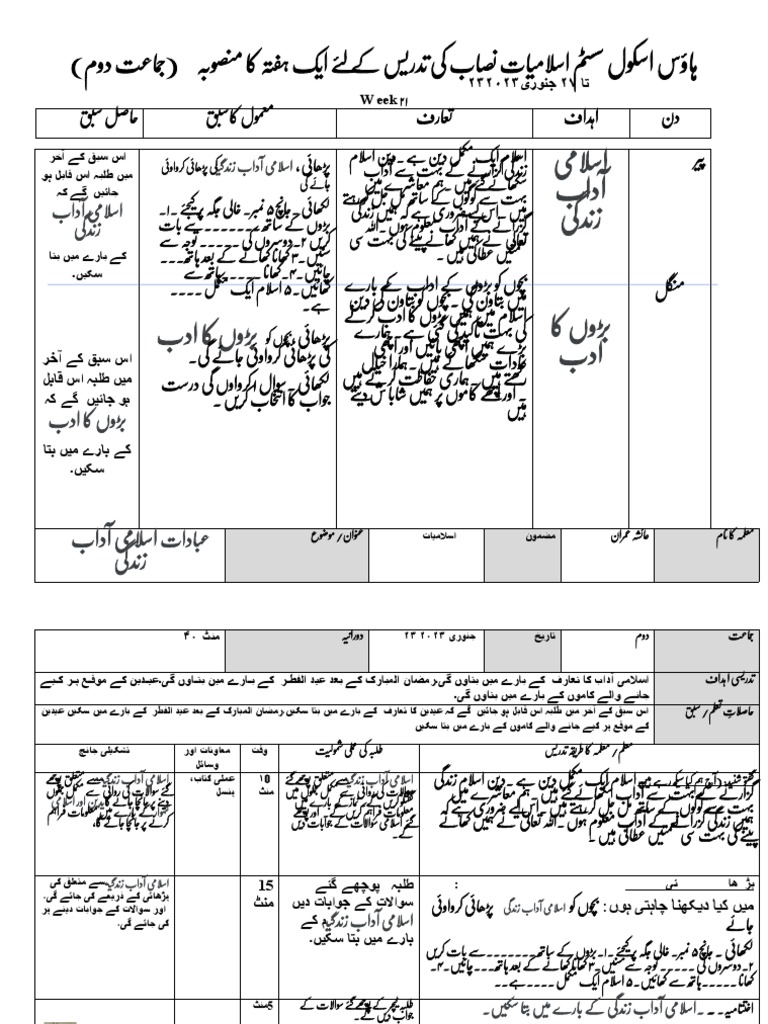 ہاؤس اسکول سسٹم اسلامیات نصاب کی تدریس کے لئے ایک ہفتہ کا منصوبہ (جماعت دوم)
تا ۲۷ جنوری ۲۰۲۳ ۲۳
Week ۲۱
دن اہداف تعارف معمول کا سبق حاصل سبق
پیر
اسلامی
آداب
زندگی
اسلام ایک مکمل دین ہے۔ دین اسلام
زندگی گزارنے کے بہت سے آداب
سکھاتے ہیں۔ ہم معاشرے میں
بہت سے لوگوں کے ساتھ مل جل کر رہتے
ہیں۔ اس لیے ضروری ہے کہ ہمیں زندگی
گزارنے کے آداب معلوم ہوں۔ اللہ
تعالی نے ہمیں کھانے پینے کی بہت سی
نعمتیں عطا کی ہیں۔
پڑھائی، اسلامی آداب زندگی کی پڑھائی کروائی
جائے گی
لکھائی۔ جانچ ۵ نمبر۔ خالی جگہ پر کیجئے۔ ۱۔
بڑوں کے ساتھ ۔۔۔۔۔۔ سے بات
کریں ۲۔ دوسروں کی ۔۔۔۔۔ توجہ سے
سنیں۔ ۳ کھانا کھانے کے بعد ہاتھ ۔۔۔
جائیں۔ ۴۔ کھانا ۔۔۔۔۔ ہاتھ سے
کھائیں۔ ۵ اسلام ایک مکمل ۔۔۔۔
ہے۔
اس سبق کے آخر
میں طلبہ اس قابل ہو
جائیں گے کہ
اسلامی آداب
زندگی
کے بارے میں بتا
سکیں۔
منگل
بڑوں کا
ادب
بچوں کو بڑوں کے اداب کے بارے
میں بتاوں گی۔ بچوں کو بتاوں گی دین
اسلام میں ہمیں بڑوں کا ادب کرنے
کی بہت تاکید کی گئی ہے۔ ہمارے
بڑے ہمیں اچھی باتیں اور اچھی
عادات سکھاتے ہیں۔ ہمارا خیال
رکھتے ہیں۔ ہماری حفاظت کرتے ہیں
۔ اور اچھے کاموں پر ہمیں شاباس دیتے
ہیں
پڑھائی بچوں کو بڑوں کا ادب
کی پڑھائی کروائی جائے گی۔
لکھائی۔ سوال ا کرواوں گی درست
جواب کا انتخاب کریں۔
اس سبق کے آخر
میں طلبہ اس قابل
ہو جائیں گے کہ
بڑوں کا ادب
کے بارے میں بتا
سکیں۔
معلمہ کا نام عائشہ عمران مضمون اسلامیات عنوان / موضوع عبادات اسلامی آداب
زندگی
جماعت دوم تاریخ ۲۳ جنوری ۲۰۲۳ دورانیہ ۴۰ منٹ
تدریسی اہداف اسلامی آداب کا تعارف کے بارے میں بتاوں گی۔رمضان المبارک کے بعد عید الفطر کے بارے میں بتاوں گی۔عیدین کے موقع پر کیے
جانے والے کاموں کے بارے میں بتاوں گی۔
حاصلات تعلم / سبق اس سبق کے آخر میں طلبہ اس قابل ہو جائیں گے کہ عیدین کا تعارف کے بارے میں بتا سکیں۔رمضان المبارک کے بعد عید الفطر کے بارے میں بتا سکیں عیدین
کے موقع پر کیے جانے والے کاموں کے بارے میں بتا سکیں
معلم / معلمہ کا طریقہ تدریس طلبہ کی عملی شمولیت وقت معاونات اور
وسائل تشکیلی جانچ
گفت و شنید: آج ہم کیا سیکھ رہے ہیں اسلام ایک مکمل دین ہے۔ دین اسلام زندگی
گزارنے کے بہت سے آداب سکھاتے ہیں۔ ہم معاشرے میں
بہت سے لوگوں کے ساتھ مل جل کر رہتے ہیں۔ اس لیے ضروری ہے کہ
ہمیں زندگی گزارنے کے آداب معلوم ہوں۔ اللہ تعالی نے ہمیں کھانے
پینے کی بہت سی نعمتیں عطا کی ہیں۔
۱۰
منٹ
عملی کتاب،
پنسل
پڑھائی :
میں کیا دیکھنا چاہتی ہوں : بچوں کو اسلامی آداب زندگی پڑھائی کروائی
جائے
لکھائی۔ جانچ ۵ نمبر۔ خالی جگہ پر کیجئے۔ ۱۔ بڑوں کے ساتھ ۔۔۔۔۔۔ سے بات کریں
۲۔ دوسروں کی ۔۔۔۔۔ توجہ سے سنیں۔ ۳ کھانا کھانے کے بعد ہاتھ ۔۔۔ جائیں۔ ۴۔
کھانا ۔۔۔۔۔ ہاتھ سے کھائیں۔ ۵ اسلام ایک مکمل ۔۔۔۔ ہے۔
طلبہ پوچھے گئے
سوالات کے جوابات دیں
اسلامی آداب زندگیم کے
بارے میں بتا سکیں۔
15
منٹ
اسلامی آداب زندگی سے متعلق کی
پڑھائی کے ذریعے کی جائے گی۔
اور سوالات کے جوابات دینے پر
کی جائے گی۔
اختتامیہ ۔۔۔ اسلامی آداب زندگی کے بارے میں بتا سکیں۔
طلبہ ٹیچر کے پوچھے گئے سوالات کے
جواب دیں گے۔
5منٹ